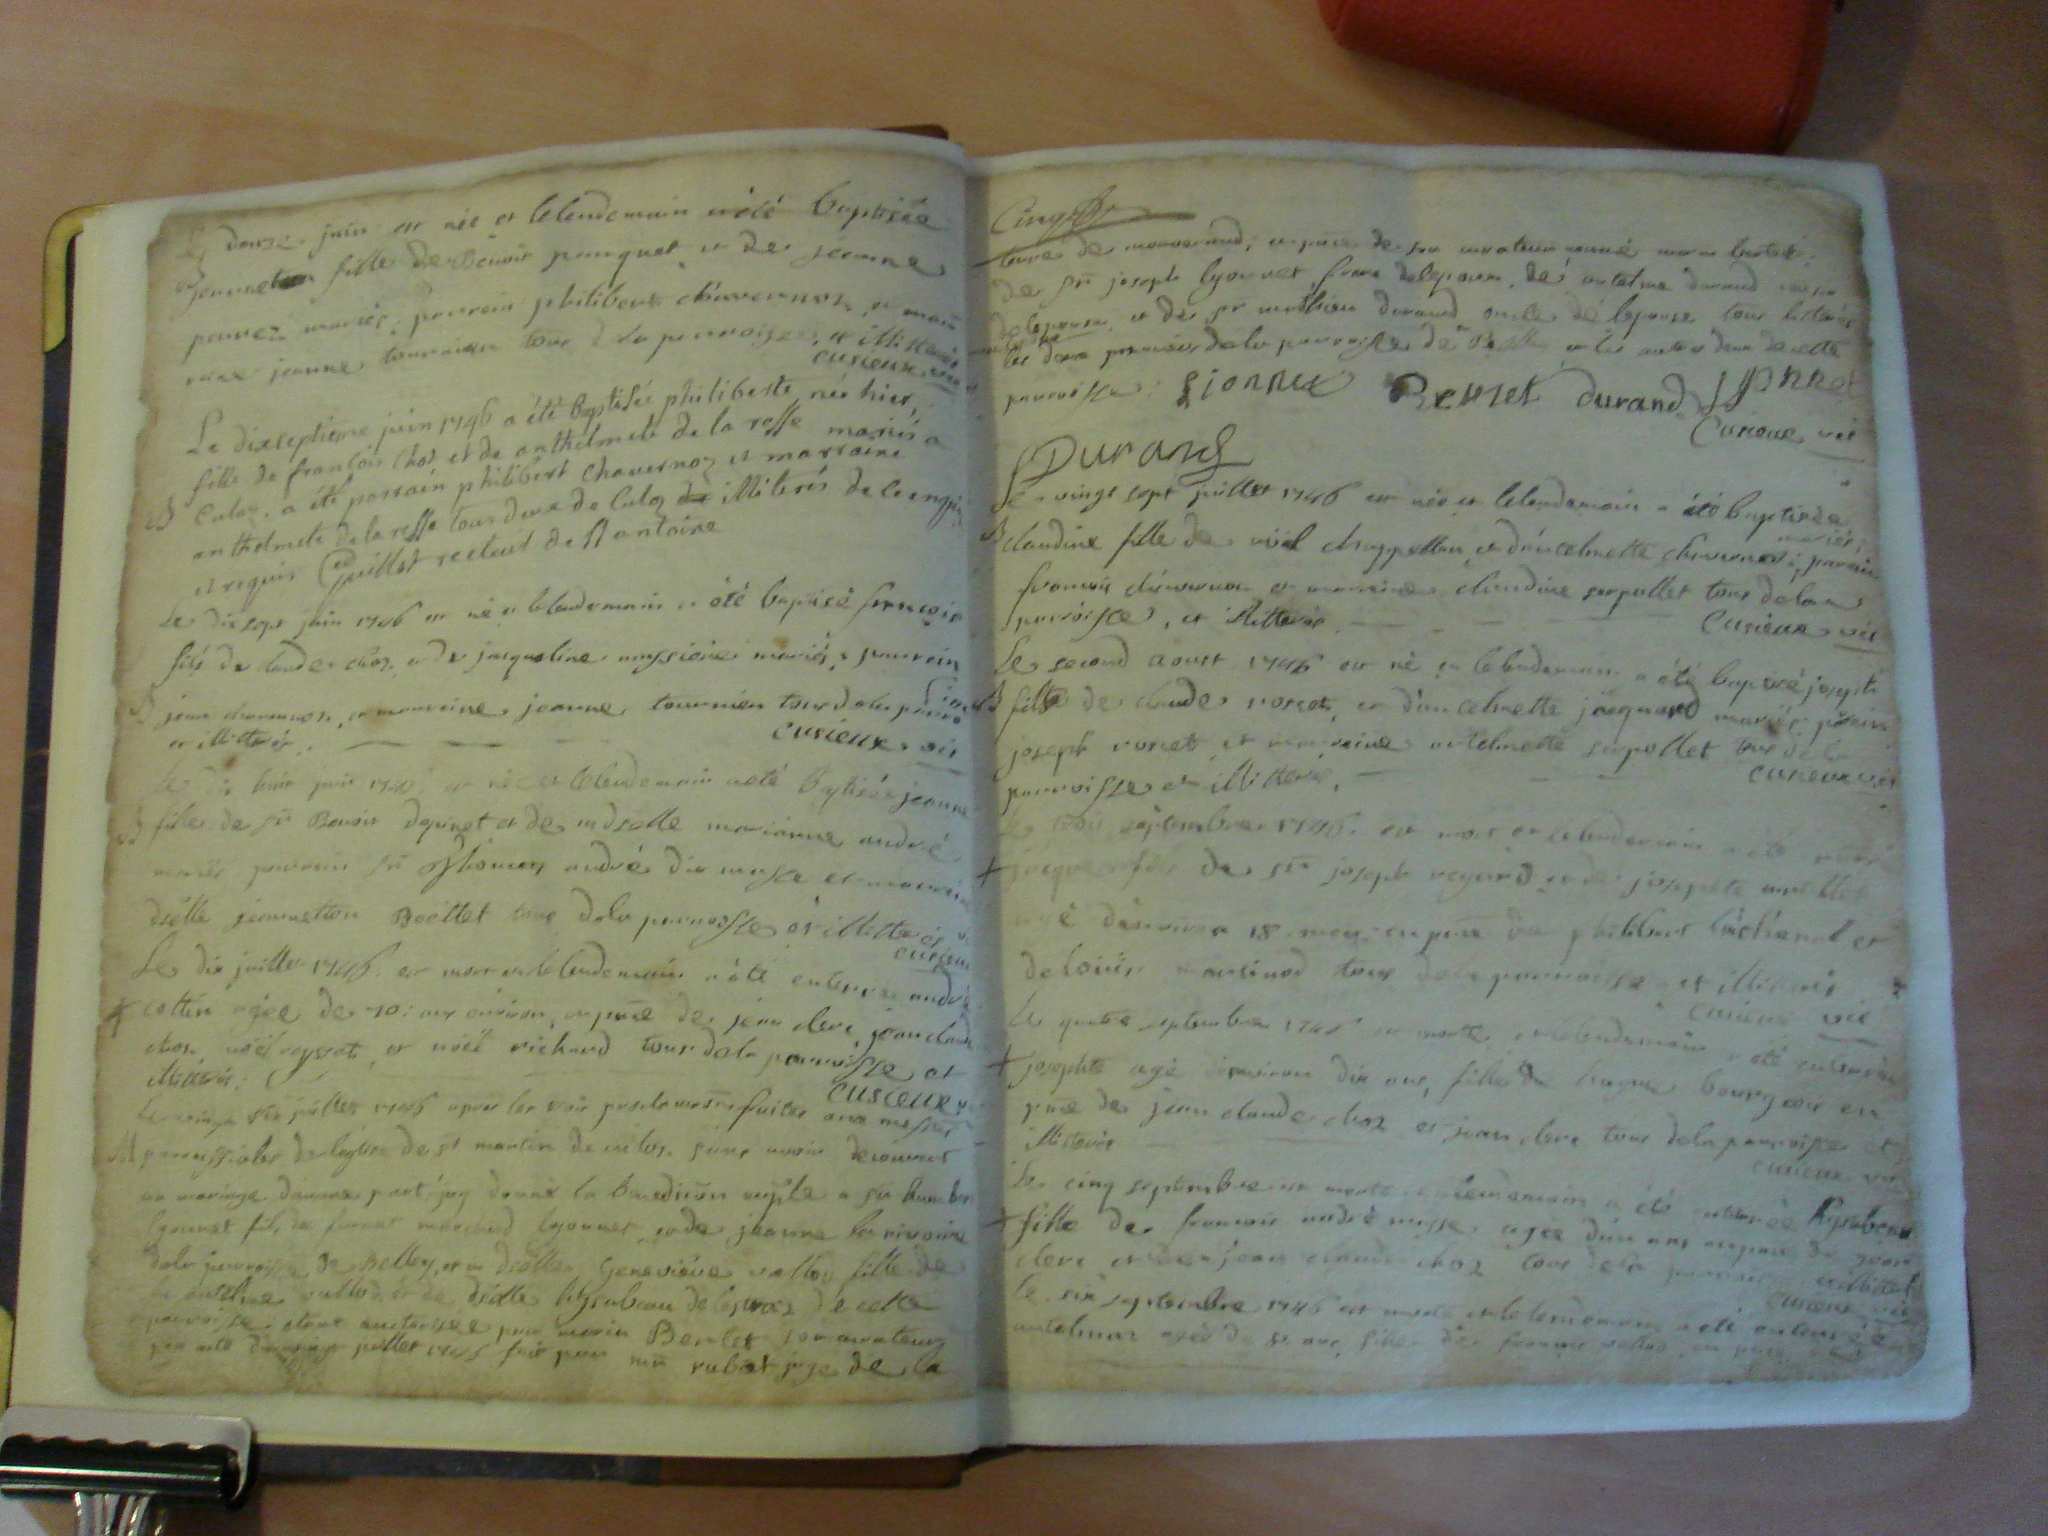 Le douze juin est née et lelendemain a été baptisée
jeanneton fille de Benoit et de jeanne
mariés, parrain philibert chavernoz, et mar
raine jeanne tournier tous d la parroisse, et illiterés
curieux vic
Le dixseptieme juin 1746 a été baptisée philiberte née hier,
fille de françois choz et de anthelmete de la resse mariés a
B culoz. a été parrain philibert chavernoz et marraine
anthelmete de la resse tous deux de culoz de illiterés de ce enquis
et requis Guillot recteur de st antoine
Le dix sept juin 1746 est né et lelendemain a été baptisé françois
fils de claude choz, et de jacqueline mariés, parrain
B jean chavernoz, et marraine jeanne tournier tous dela parro
et illitterés. curieux vic
Le dix huit juin 1746 est née et lelendemain a été Baptisée jeanne
B fille de sr Benoit depinet et de mdselle marianne andré
mariés parrain sr Thomas andré dit masse et marraine
dselle jeannetton Boettet tous dela parroisse et illitterés
curieux
Le dix juillet 1746. est mort et lelendemain a été enterré andré
cottin agée de 70: ans environ, en pnce de jean clerc, jean claude
choz, noël reysset, et noël richard tous dela parroisse et
illitterés. curieux v
Le vingt juillet 1746 apres les trois proclamations faites aux messes
M parroissiales de leglise de st martin de culoz, sans avoir decouvert
un mariage d'autre part, j'ay donné la Benediction nuptle a sr humbert
lyonnet fils de marchand lyonnet, et de jeanne la rivoire
dela parroisse de Belley, et a dselle Genevieve vallod fille de
sr antelme vallod et de dselle lysabeau delapraz de cette
parroisse, etant authorisée par marin Berlet son curateur
par acte du vingt juillet 1746 fait par rubat juge de la
terre de et pnce de son curateur nommé marin berlet
de sr joseph lyonnet frere delepoux, de antelme durand
delepouse, et de sr mathieu durand oncle de lepouse tous
les deux premiers dela parroisse de Belley et les autres deux de cette
parroisse. Lionnet Berlet durand Lionnet
Curieux vic
Durand
Le vingt sept juillet 1746 est née et lelendemain a été baptisée
B claudine fille de noël chappellau, et d'antelmette chavernoz mariés, parrain
françois chavernoz et marraine claudine serpollet tous dela
parroisse, et illitterés Curieux vic
Le second aoust 1746 est né et lelendemain a été baptisé joseph
B fils de claude rosset, et d'antelmette jacquand mariés parrain
joseph rosset et marraine antelmette serpollet tous dela
parroisse et illitterés. curieux vic
Le trois septembre 1746. est mort et lelendemain a été enterré
+ jacques fils de sr joseph reguard et de josephte
agé d'environ 18 mois en pnce de philibert et
de louis martinod tous dela parroisse et illitterés
curieux vic
Le quatre septembre 1746 est morte et lelendemain a été enterrée
+ josephte agé d'environ dix ans, fille de hugue bourgeois en
pnce de jean claude choz et jean clerc tous dela parroisse et
illitterés curieux vic
Le cinq septembre est morte et lelendemain a été enterrée lysabeau
+ fille de françois andré masse agée d'un ans en pnce de jean
clerc et de jean claude choz tous dela parroisse illitterés
curieux vic
Le six septembre 1746 est morte et lelendemain a été enterrée
agée de ans, fille de françois vallod, en pnce de